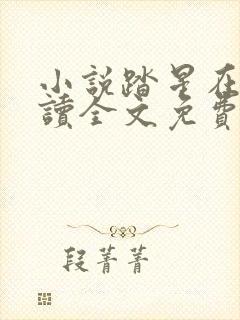 小說踏星在
讀全文免費
段菁菁